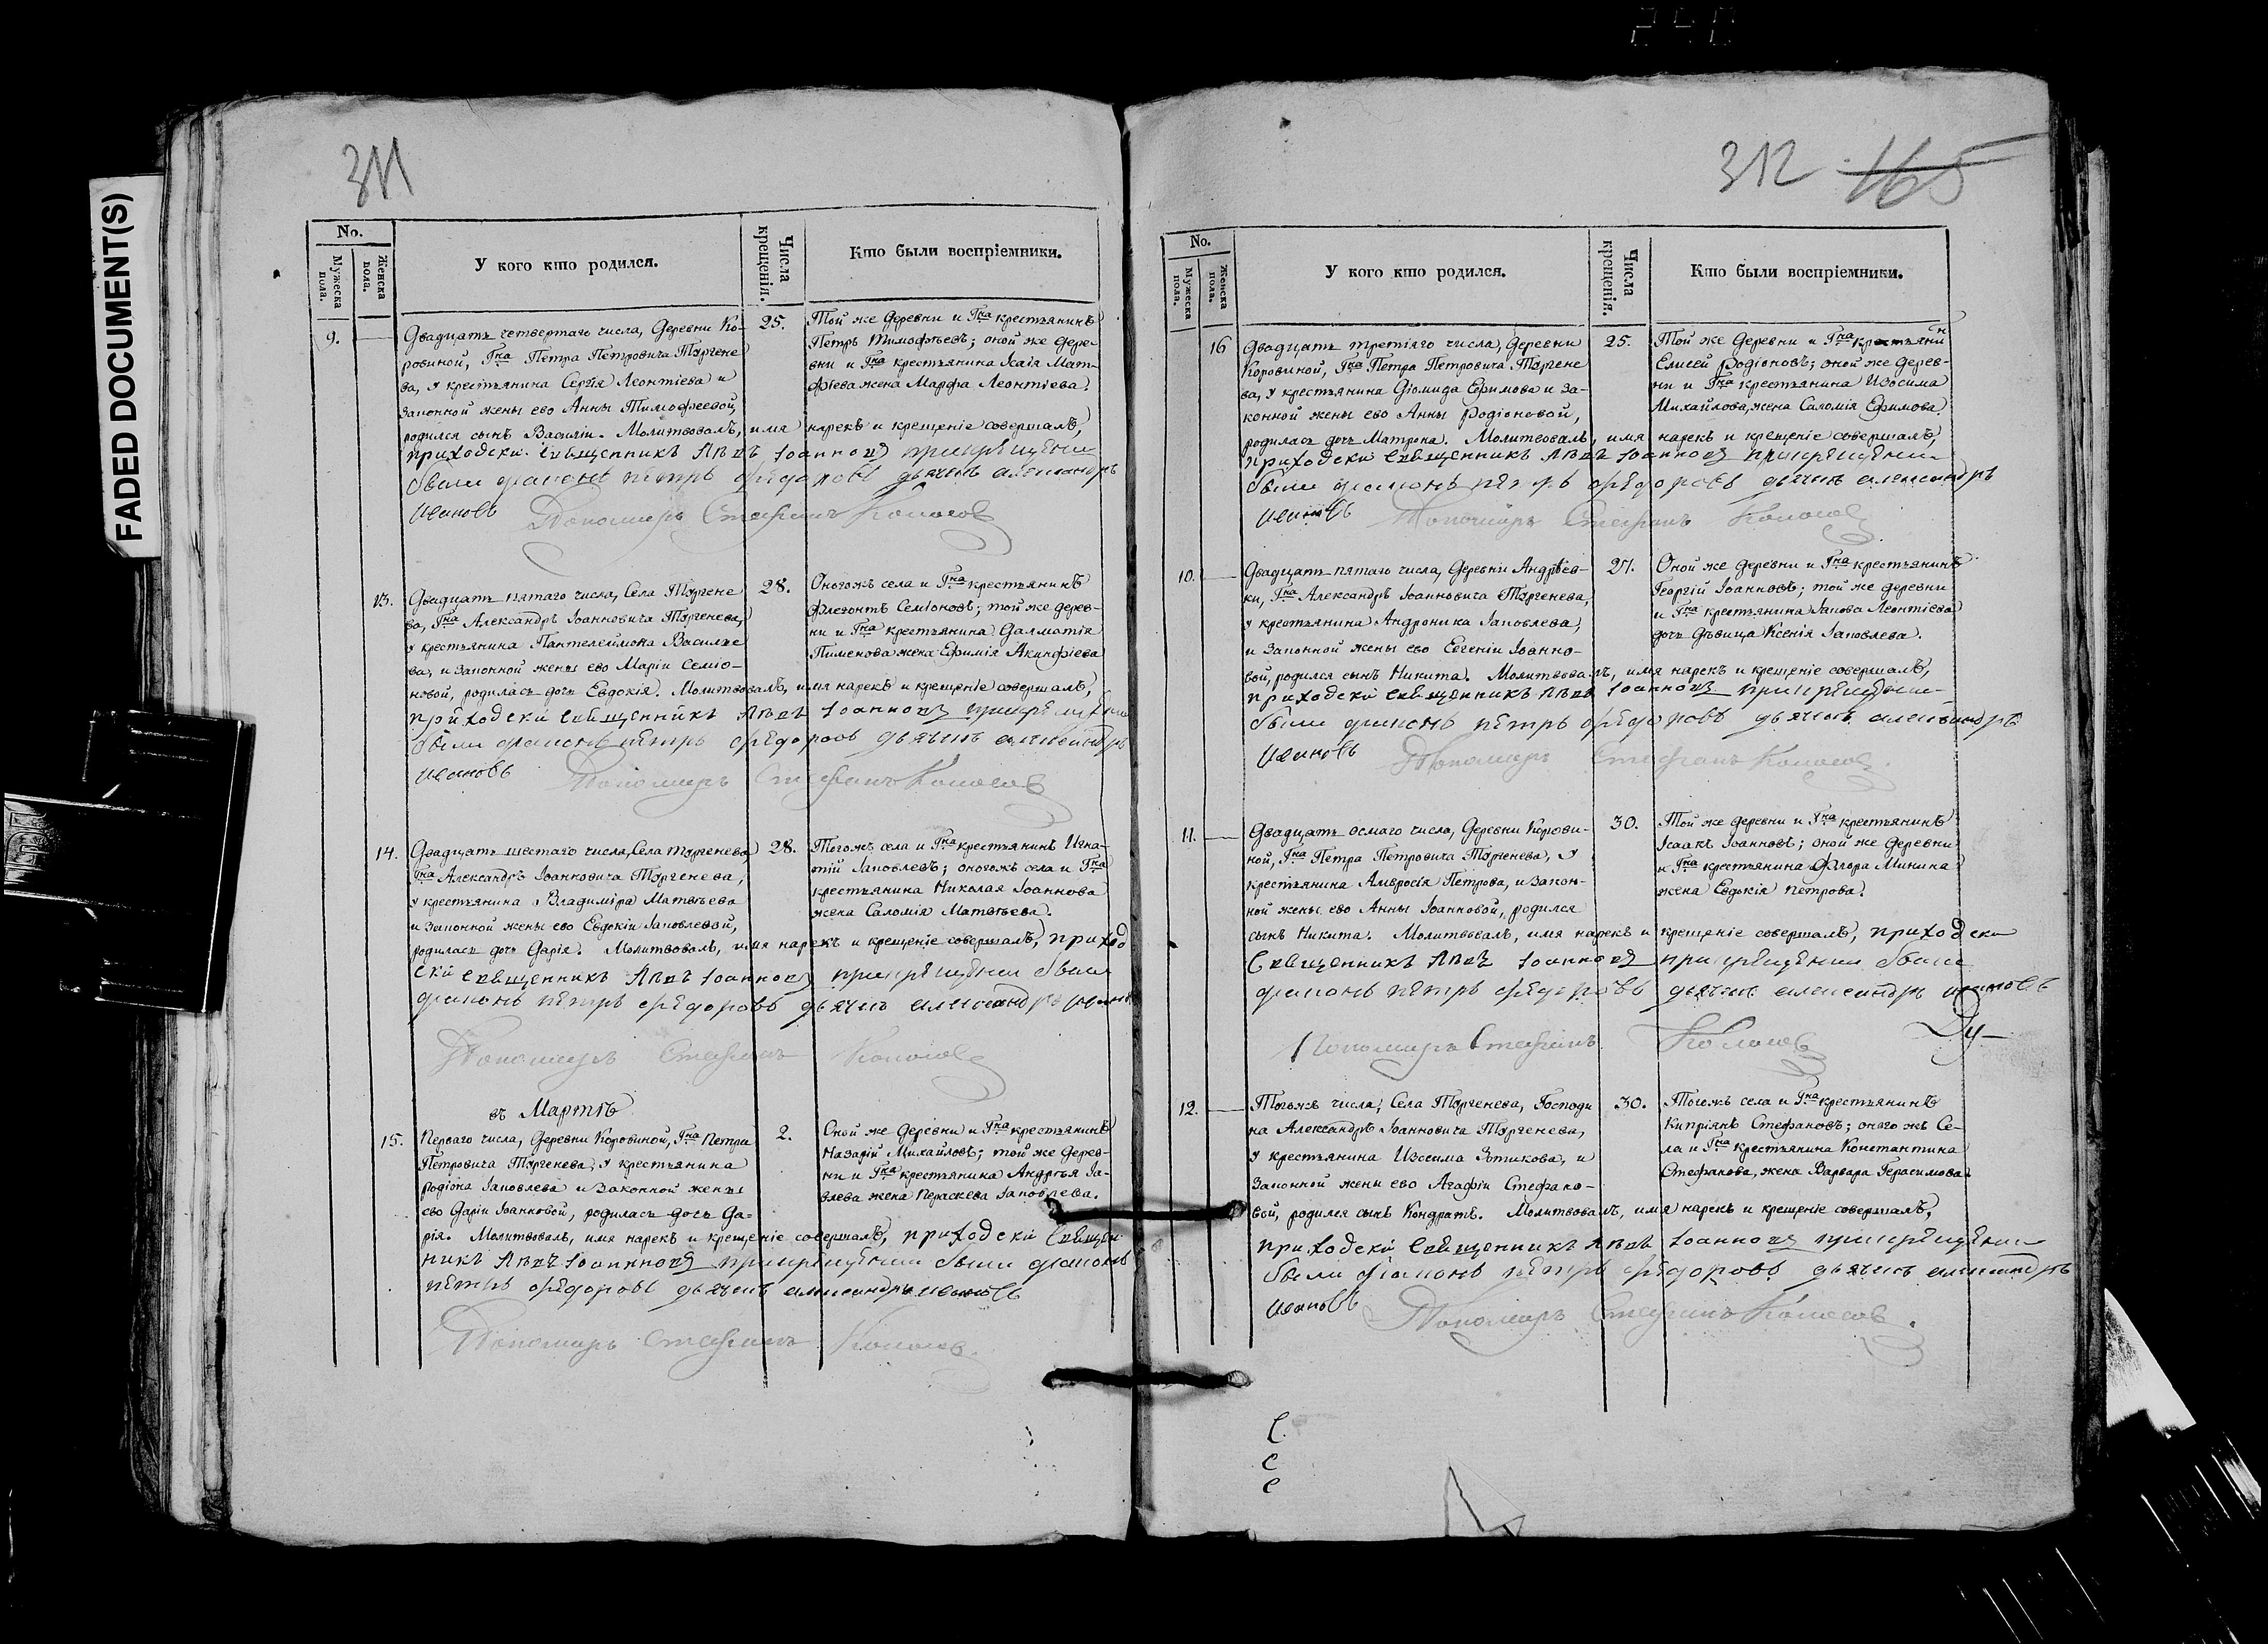 FADED DOCUMENT(S)
311
No.
Мужеска пола.
Женска пола.
У кого кто родился.
Числа крещенія.
Кто были воспріемники.
9.
Двадцать четвертаго числа, Деревни Ко-
ровиной, Гна Петра Петровича Тургене
ва, у крестьянина Сергія Леонтіева и
Законной жены ево Анны Тимофеевой,
родился сынъ Василій. Молитвовалъ, имя нарекъ и крещеніе совершалъ,
приходскій священникъ Левъ Іоанновъ при крещеніи
были діаконъ петръ федоровъ дьячекъ александръ
ивановъ Пономарь Стефанъ Колосов
25.
Той же деревни и Гна крестьянинъ
Петръ Тимофѣевъ; оной же дере-
вни и Гна крестьянина Исаія Мат-
фѣева жена Марфа Леонтіева.
13.
Двадцать пятаго числа, Села Тургене
ва, Гна Александръ Іоанновича Тургенева,
у крестьянина Пантелеймона Василье
ва, и Законной жены ево Маріи Семіо-
новой, родилась дочь Евдокія. Молитвовалъ, имя нарекъ и крещеніе совершалъ,
приходскій священникъ Левъ Іоанновъ при крещеніи
были діаконъ петръ федоровъ дьячекъ александръ
ивановъ Пономарь Стефанъ Колосов
28.
Оногожъ села и Гна крестьянинъ
Флегонтъ Семіоновъ; той же дерев-
ни и Гна крестьянина Далматія
Пименова жена Ефимія Акинфіева
14.
Двадцать шестаго числа, Села Тургенева
Гна Александръ Іоанновича Тургенева,
у крестьянина Владиміра Матвѣева
и Законной жены ево Евдокіи Іаковлевой,
родилась дочь Дарія. Молитвовалъ, имя нарекъ и крещеніе совершалъ, приход
скій священникъ Левъ Іоанновъ при крещеніи были
діаконъ петръ федоровъ дьячекъ александръ иванов
Пономарь Стефанъ Колосов
28.
Тогожъ села и Гна крестьянинъ Игна-
тій Іаковлевъ; оногожъ села и Гна
крестьянина Николая Іоаннова
жена Саломія Матвѣева.
въ Мартѣ
15.
Перваго числа, Деревни Коровиной, Гна Петра
Петровича Тургенева, у крестьянина
Родіона Іаковлева и Законной жены
ево Даріи Іоанновой, родилась дочь Да-
рія. Молитвовалъ, имя нарекъ и крещеніе совершалъ, приходскій священ
никъ Левъ Іоанновъ при крещеніи были діаконъ
петръ федоровъ дьячекъ александръ ивановъ
Пономарь Стефанъ Колосов.
2.
Оной же деревни и Гна крестьянинъ
Назарій Михайловъ; той же дерев-
ни и Гна крестьянина Андрѣя Іа-
влева жена Параскева Іаковлева.
312 165
No.
Мужеска пола.
Женска пола.
У кого кто родился.
Числа крещенія.
Кто были воспріемники.
16
Двадцать третіяго числа, Деревни
Коровиной, Гна Петра Петровича Тургене
ва, у крестьянина Діомида Ефимова и за-
конной жены ево Анны Родіоновой,
родилась дочь Матрона. Молитвовалъ, имя нарекъ и крещеніе совершалъ,
приходскій священникъ Левъ Іоанновъ при крещеніи
были діаконъ петръ федоровъ дьячекъ александръ
ивановъ Пономарь Стефанъ Колосов
25.
Той же деревни и Гна крестьянин
Елисей Родіоновъ; оной же дерев-
ни и Гна крестьянина Изосима
Михайлова, жена Саломія Ефимова.
10.
Двадцать пятаго числа, Деревни Андрѣев-
ки, Гна Александръ Іоанновича Тургенева,
у крестьянина Андроника Іаковлева,
и Законной жены ево Евгеніи Іоанно-
вой, родился сынъ Никита. Молитвовалъ, имя нарекъ и крещеніе совершалъ,
приходскій священникъ Левъ Іоанновъ при крещеніи
были діаконъ петръ федоровъ дьячекъ александръ
ивановъ Пономарь Стефанъ Колосов.
27.
Оной же деревни и Гна крестьянинъ
Георгій Іоанновъ; той же деревни
и Гна крестьянина Іакова Леонтіева
дочь дѣвица Ксенія Іаковлева.
11.
Двадцать осмаго числа, Деревни Корови-
ной, Гна Петра Петровича Тургенева, у
крестьянина Амвросія Петрова, и Закон-
ной жены ево Анны Іоанновой, родился
сынъ Никита. Молитвовалъ, имя нарекъ и крещеніе совершалъ, приходскій
Священникъ Левъ Іоанновъ при крещеніи были
діаконъ петръ федоровъ дьячекъ александръ ивановъ
Пономарь Стефанъ Колосов Ду-
30.
Той же деревни и Гна крестьянинъ
Ісаакъ Іоанновъ; оной же деревни
и Гна крестьянина Флора Минина
жена Евдокія Петрова.
12.
Тогожъ числа, Села Тургенева, Господи
на Александръ Іоанновича Тургенева,
у крестьянина Изосима Ѳотикова, и
Законной жены ево Агафіи Стефано-
вой, родился сынъ Кондратъ. Молитвовалъ, имя нарекъ и крещеніе совершалъ,
приходскій священникъ Левъ Іоанновъ при крещеніи
были діаконъ петръ федоровъ дьячекъ александръ
ивановъ Пономарь Стефанъ Колосов.
30.
Тогожъ села и Гна крестьянинъ
Кипріянъ Стефановъ; оногожъ Се-
ла и Гна крестьянина Константина
Стефанова, жена Варвара Герасимова.